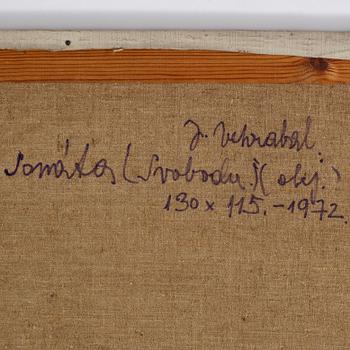 J. Vehrabal:
Sonáta (Svobodu.) (olej.)
130 x 115. - 1972.